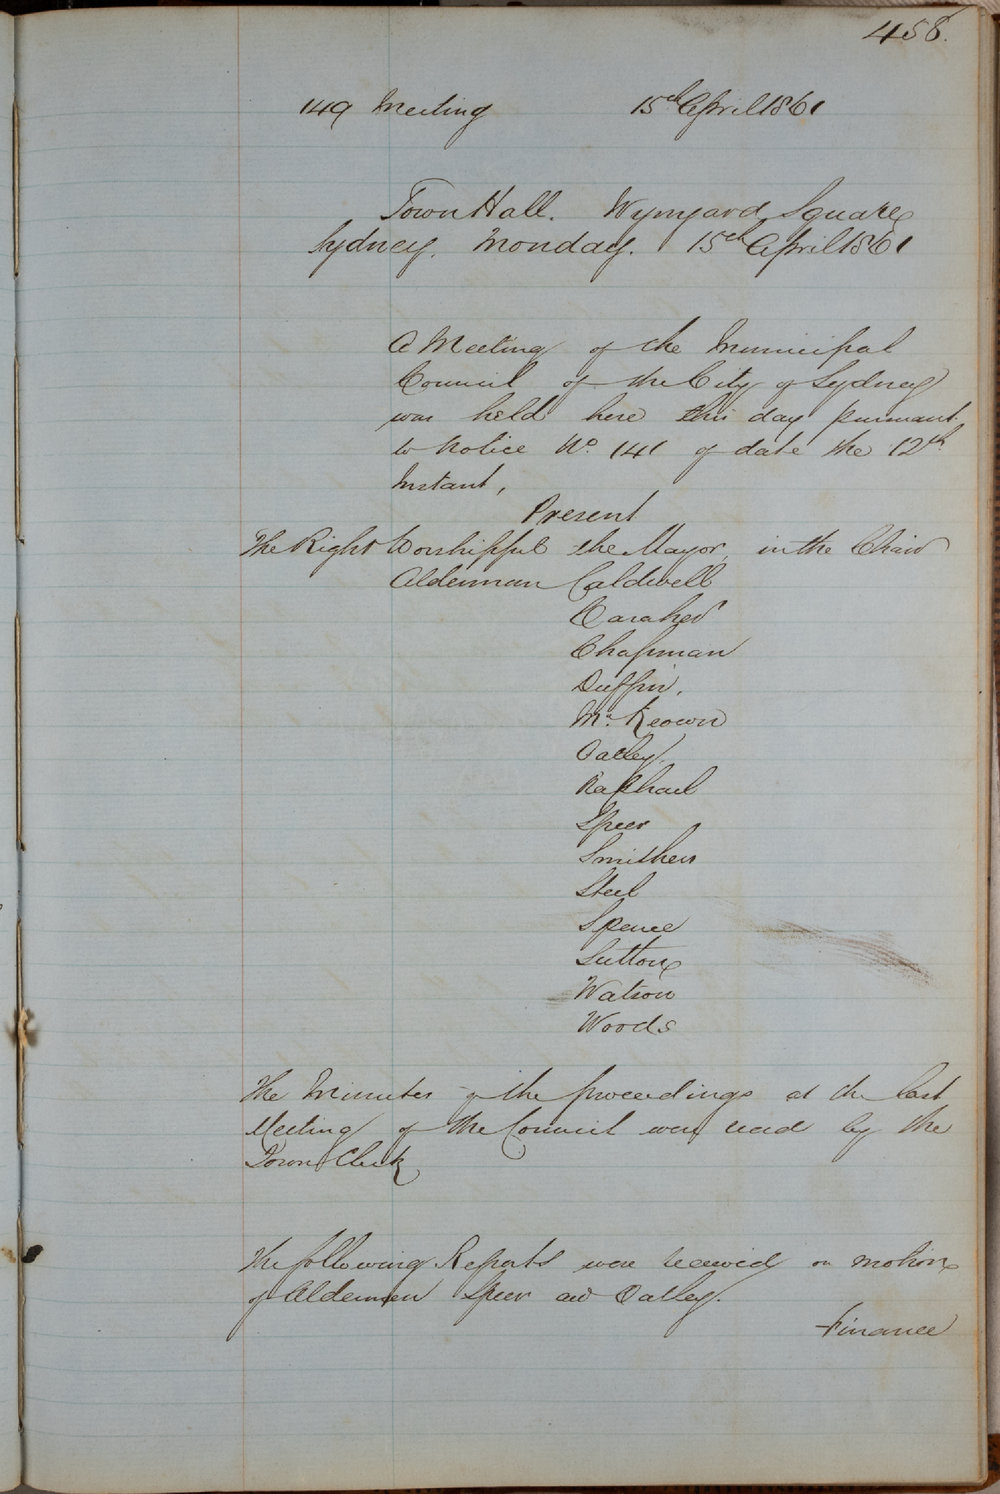 458.
149 Meeting 15th April 1861
Town Hall. Wynyard Square
Sydney. Monday. 15th April 1861
A Meeting of the Municipal
Council of the City of Sydney
was held here this day pursuant
to Notice No. 141 of date the 12th
Instant,
Present
The Right Worshipful the Mayor, in the Chair
Alderman Caldwell
Caraher
Chapman
Duffin.
Mc. Keown
Oatley.
Raphael
Speer
Smithers
Steel
Spence
Sutton
Watson
Woods
The Minutes of the proceedings at the last
Meeting of the Council were read by the
Town Clerk
The following Reports were received on motion
of Aldermen Speer and Oatley.
Finance